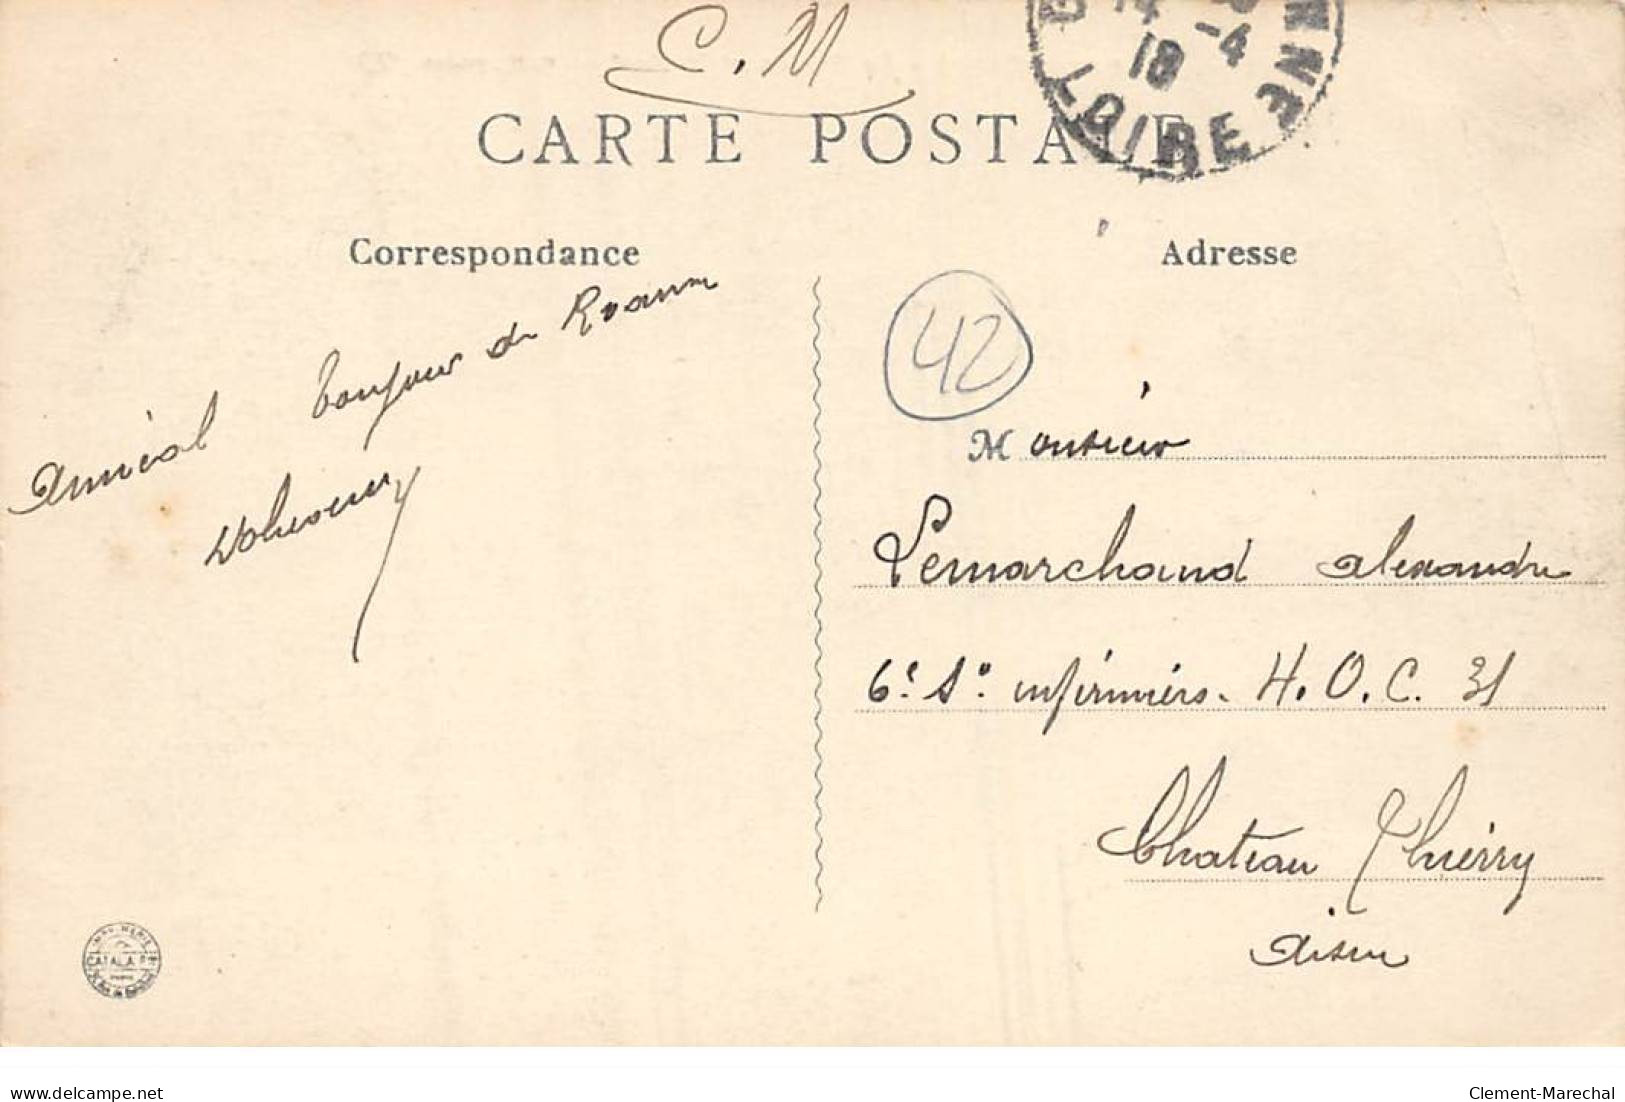 C. M
CARTE POSTALE
14 -4
18
LOIRE
Correspondance
Adresse
Amical bonjour de Roanne
42
Monsieur
Lemarchand Alexandre
6e So infirmiers. H.O.C. 31
Chateau Thiérry
Aisne
CATALA
delcampe.net
Clement-Marechal